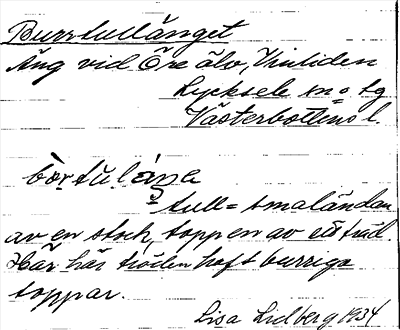 Burrtullänget
Äng vid Öre älv, Vinliden
Lycksele sn o tg
Västerbottens l.
tull = smaländan
av en stock, toppen av ett träd.
Här här träden haft burriga
toppar.
Lisa Lidberg 1934